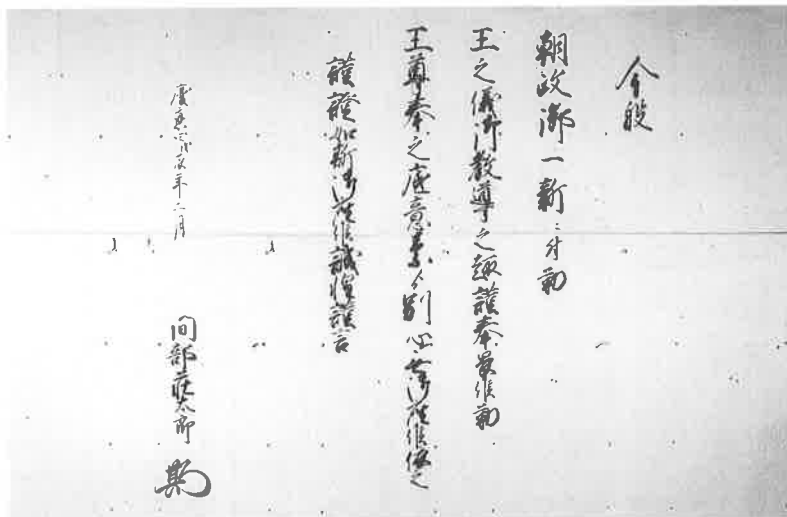 今般
朝政御一新ニ付勤
王之儀御教導之趣謹奉畏候勤
王尊奉之底意素ゟ別心無御座候依之
謹證如斯御座候誠惶謹言
慶應四戊辰年二月
間部荘太郎